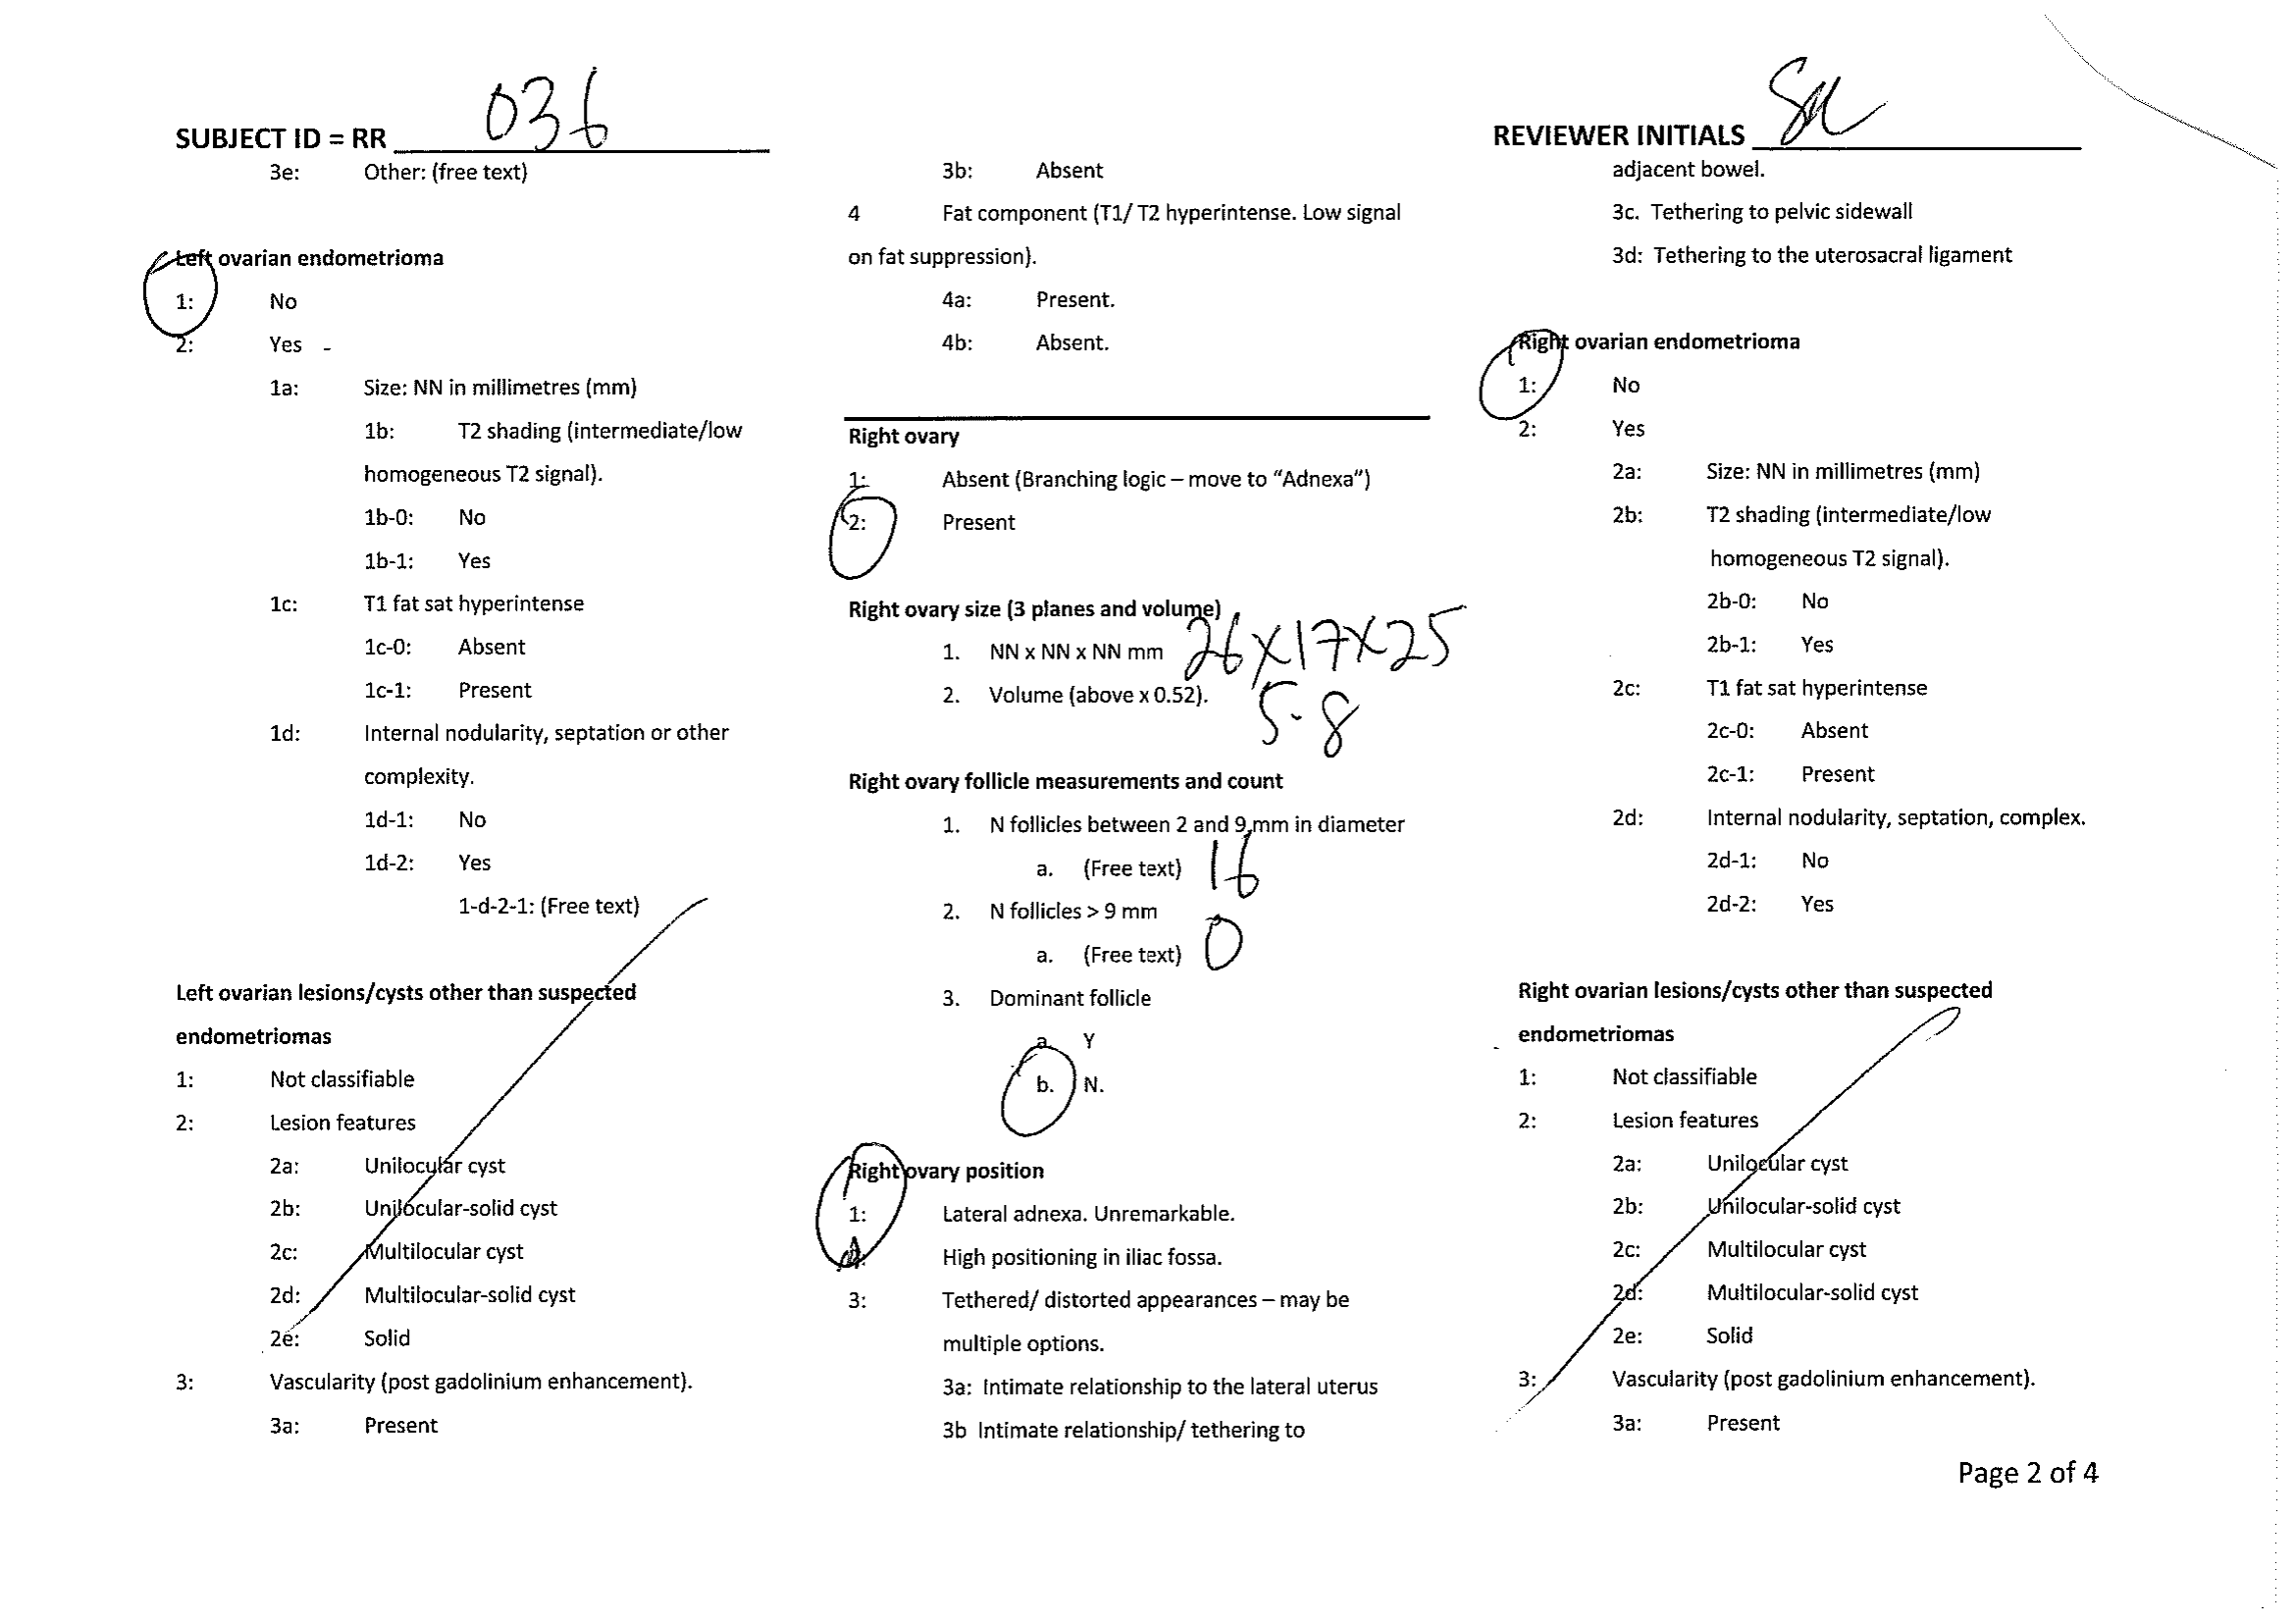 SUBJECT ID = RR 036
3e: Other: (free text)
Left ovarian endometrioma
1: No
2: Yes -
1a: Size: NN in millimetres (mm)
1b: T2 shading (intermediate/low
homogeneous T2 signal).
1b-0: No
1b-1: Yes
1c: T1 fat sat hyperintense
1c-0: Absent
1c-1: Present
1d: Internal nodularity, septation or other
complexity.
1d-1: No
1d-2: Yes
1-d-2-1: (Free text)
Left ovarian lesions/cysts other than suspected
endometriomas
1: Not classifiable
2: Lesion features
2a: Unilocular cyst
2b: Unilocular-solid cyst
2c: Multilocular cyst
2d: Multilocular-solid cyst
2e: Solid
3: Vascularity (post gadolinium enhancement).
3a: Present
3b: Absent
4 Fat component (T1/ T2 hyperintense. Low signal
on fat suppression).
4a: Present.
4b: Absent.
Right ovary
1: Absent (Branching logic – move to “Adnexa”)
2: Present
Right ovary size (3 planes and volume)
1. NN x NN x NN mm 26x17x25
2. Volume (above x 0.52). 5.8
Right ovary follicle measurements and count
1. N follicles between 2 and 9 mm in diameter
a. (Free text) 16
2. N follicles > 9 mm
a. (Free text) 0
3. Dominant follicle
a. Y
b. N.
Right ovary position
1: Lateral adnexa. Unremarkable.
High positioning in iliac fossa.
3: Tethered/ distorted appearances – may be
multiple options.
3a: Intimate relationship to the lateral uterus
3b Intimate relationship/ tethering to
REVIEWER INITIALS
adjacent bowel.
3c. Tethering to pelvic sidewall
3d: Tethering to the uterosacral ligament
Right ovarian endometrioma
1: No
2: Yes
2a: Size: NN in millimetres (mm)
2b: T2 shading (intermediate/low
homogeneous T2 signal).
2b-0: No
2b-1: Yes
2c: T1 fat sat hyperintense
2c-0: Absent
2c-1: Present
2d: Internal nodularity, septation, complex.
2d-1: No
2d-2: Yes
Right ovarian lesions/cysts other than suspected
endometriomas
1: Not classifiable
2: Lesion features
2a: Unilocular cyst
2b: Unilocular-solid cyst
2c: Multilocular cyst
2d: Multilocular-solid cyst
2e: Solid
3: Vascularity (post gadolinium enhancement).
3a: Present
Page 2 of 4